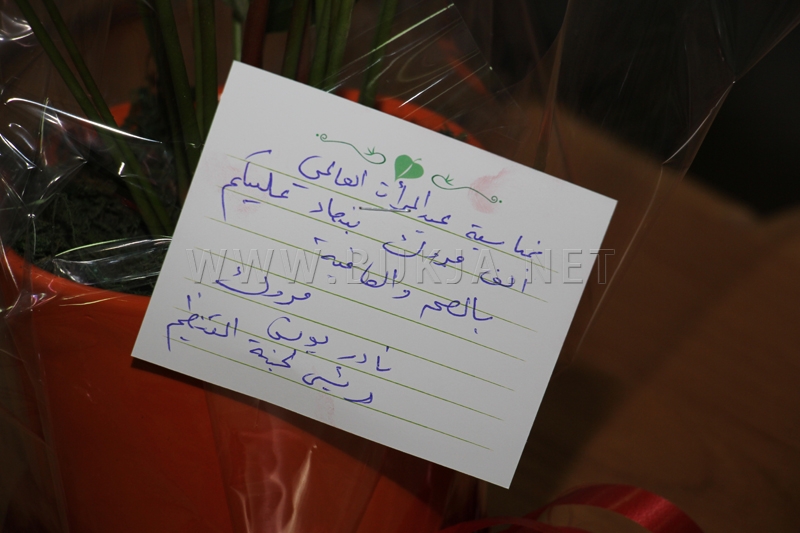 بمناسبة عيد المرأت العالمي
الف مبروك ينعاد عليكم
بالصحه والعافية
مبروك
نادر يونس
رئيس لجنة التنظيم
WWW.BUKJA.NET